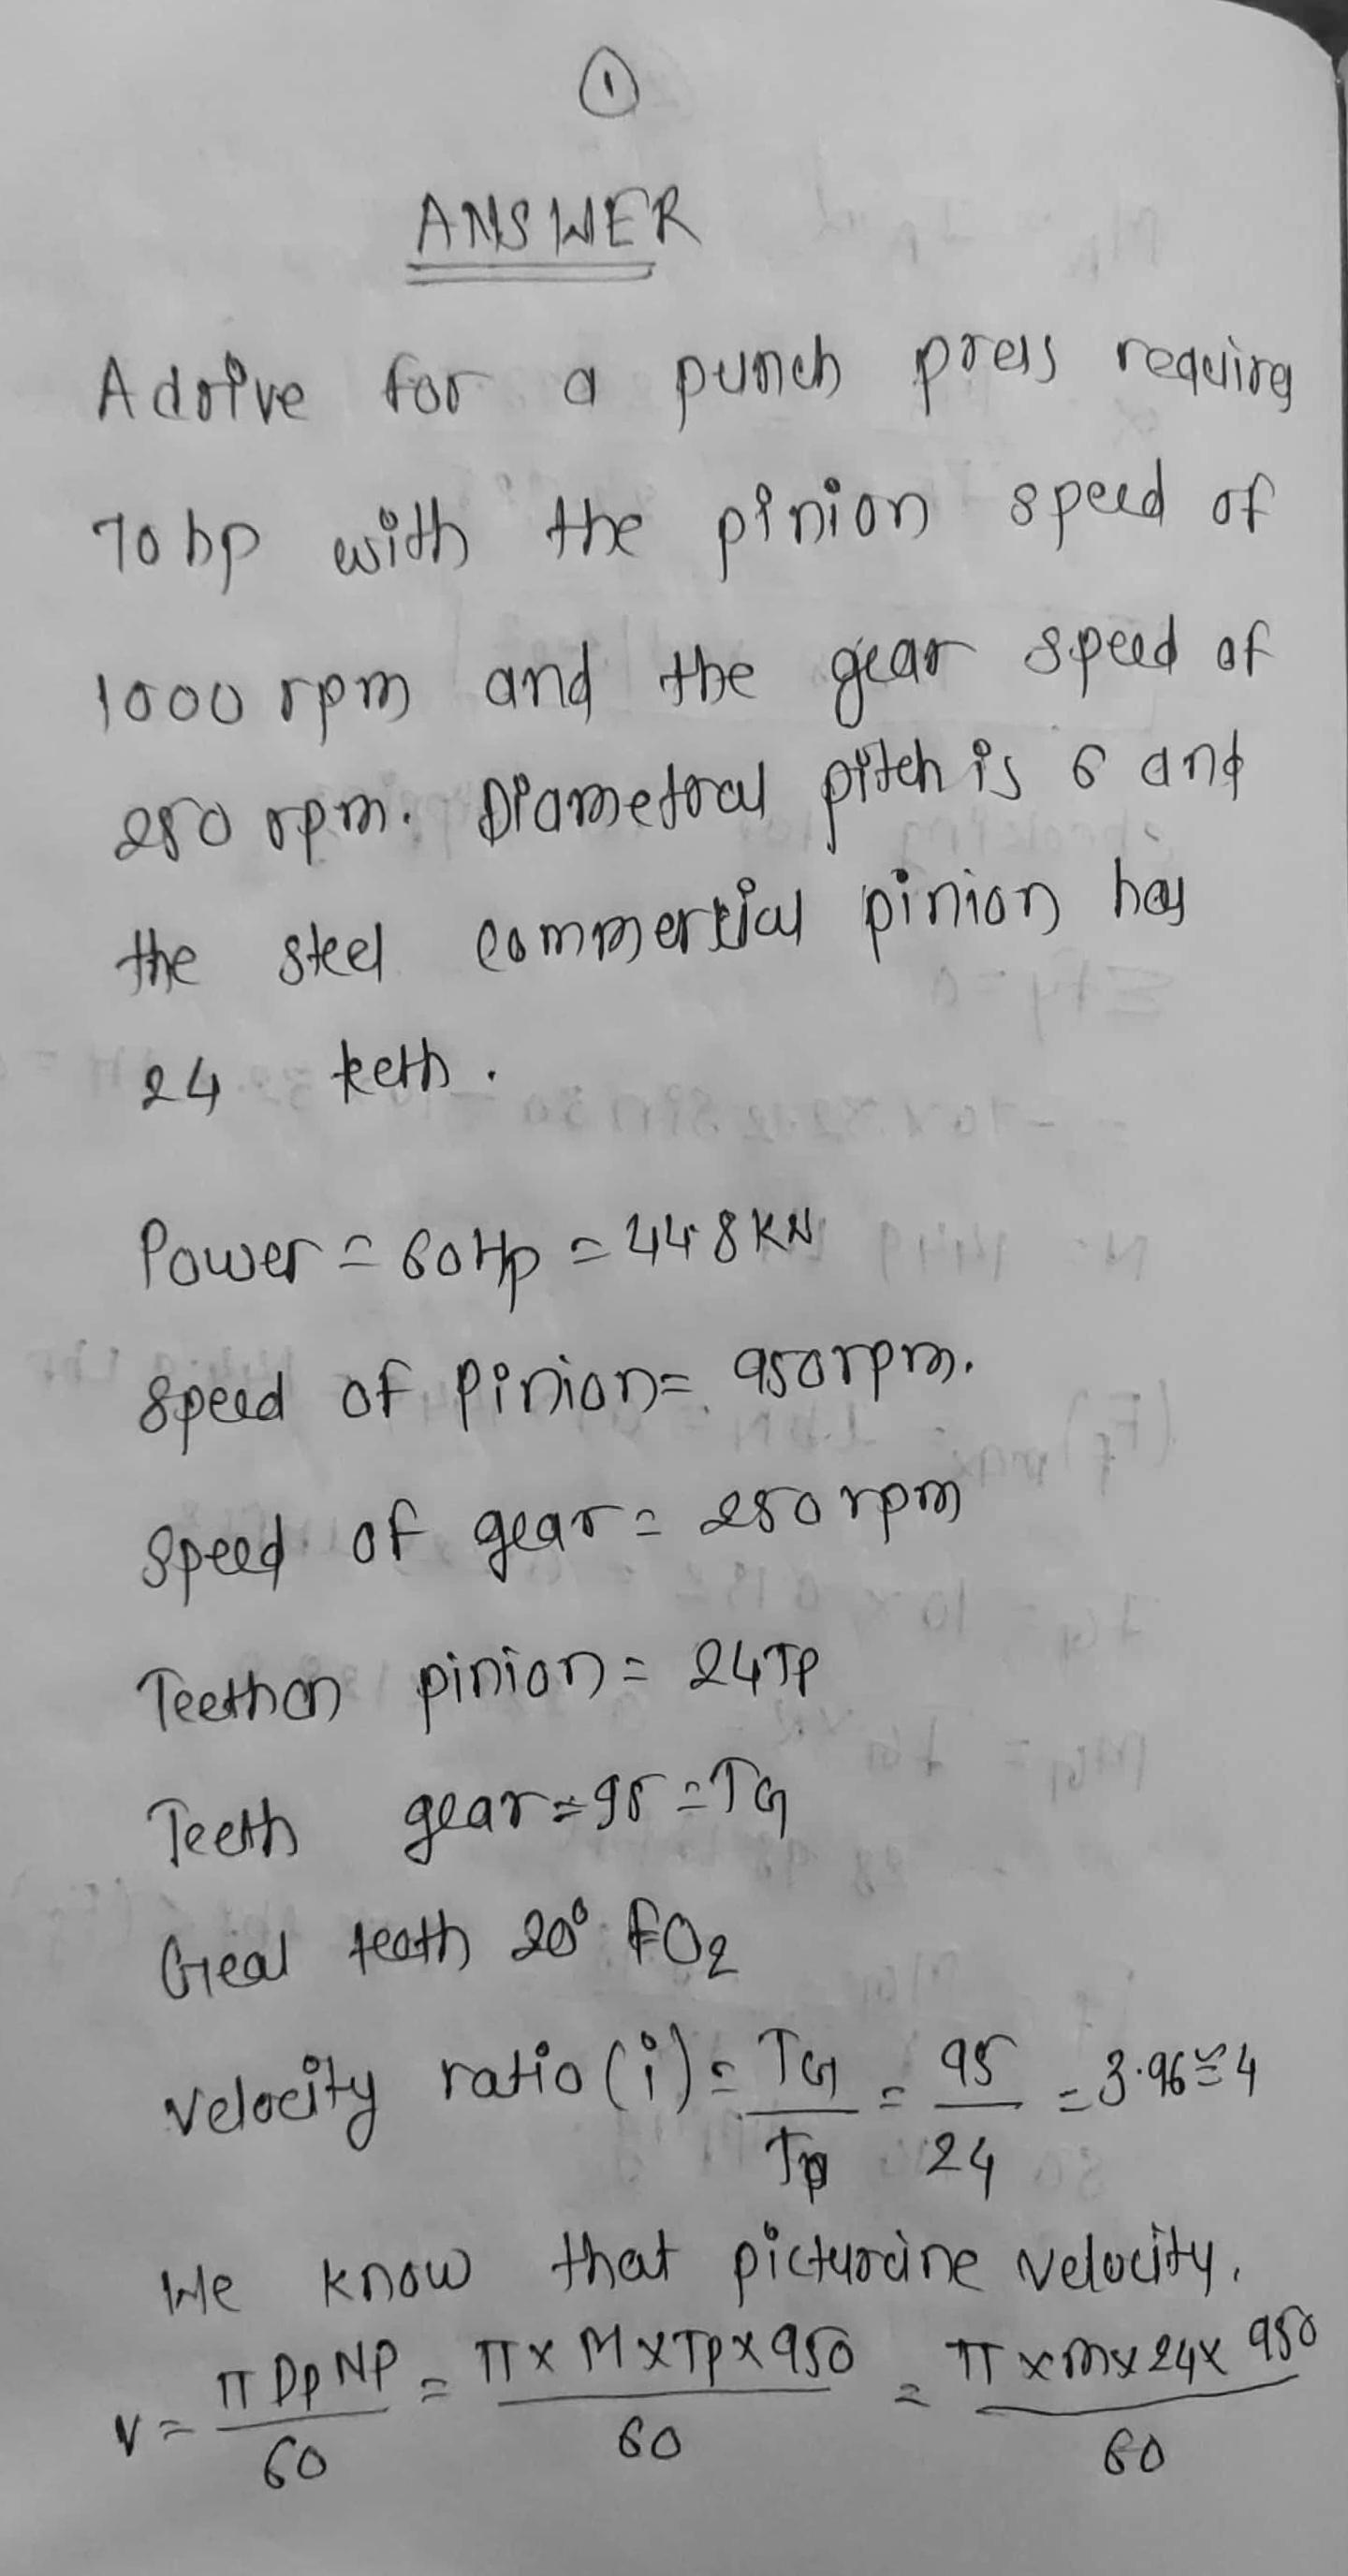 1
ANSWER
A drive for a punch press requires
70 hp with the pinion speed of
1000 rpm and the gear speed of
250 rpm. Diametral pitch is 6 and
the steel commercial pinion has
24 teeth.
Power = 60Hp = 44.8KN
Speed of Pinion = 950rpm.
Speed of gear = 250 rpm
Teeth on pinion = 24 TP
Teeth gear = 95 = TG
Geal teeth 20° FO2
Velocity ratio (i) = TG/Tp = 95/24 = 3.96 ≅ 4
We know that picturcine velocity.
V = π DP NP/60 = π x M x TP x 950/60 = π x m x 24 x 950/60